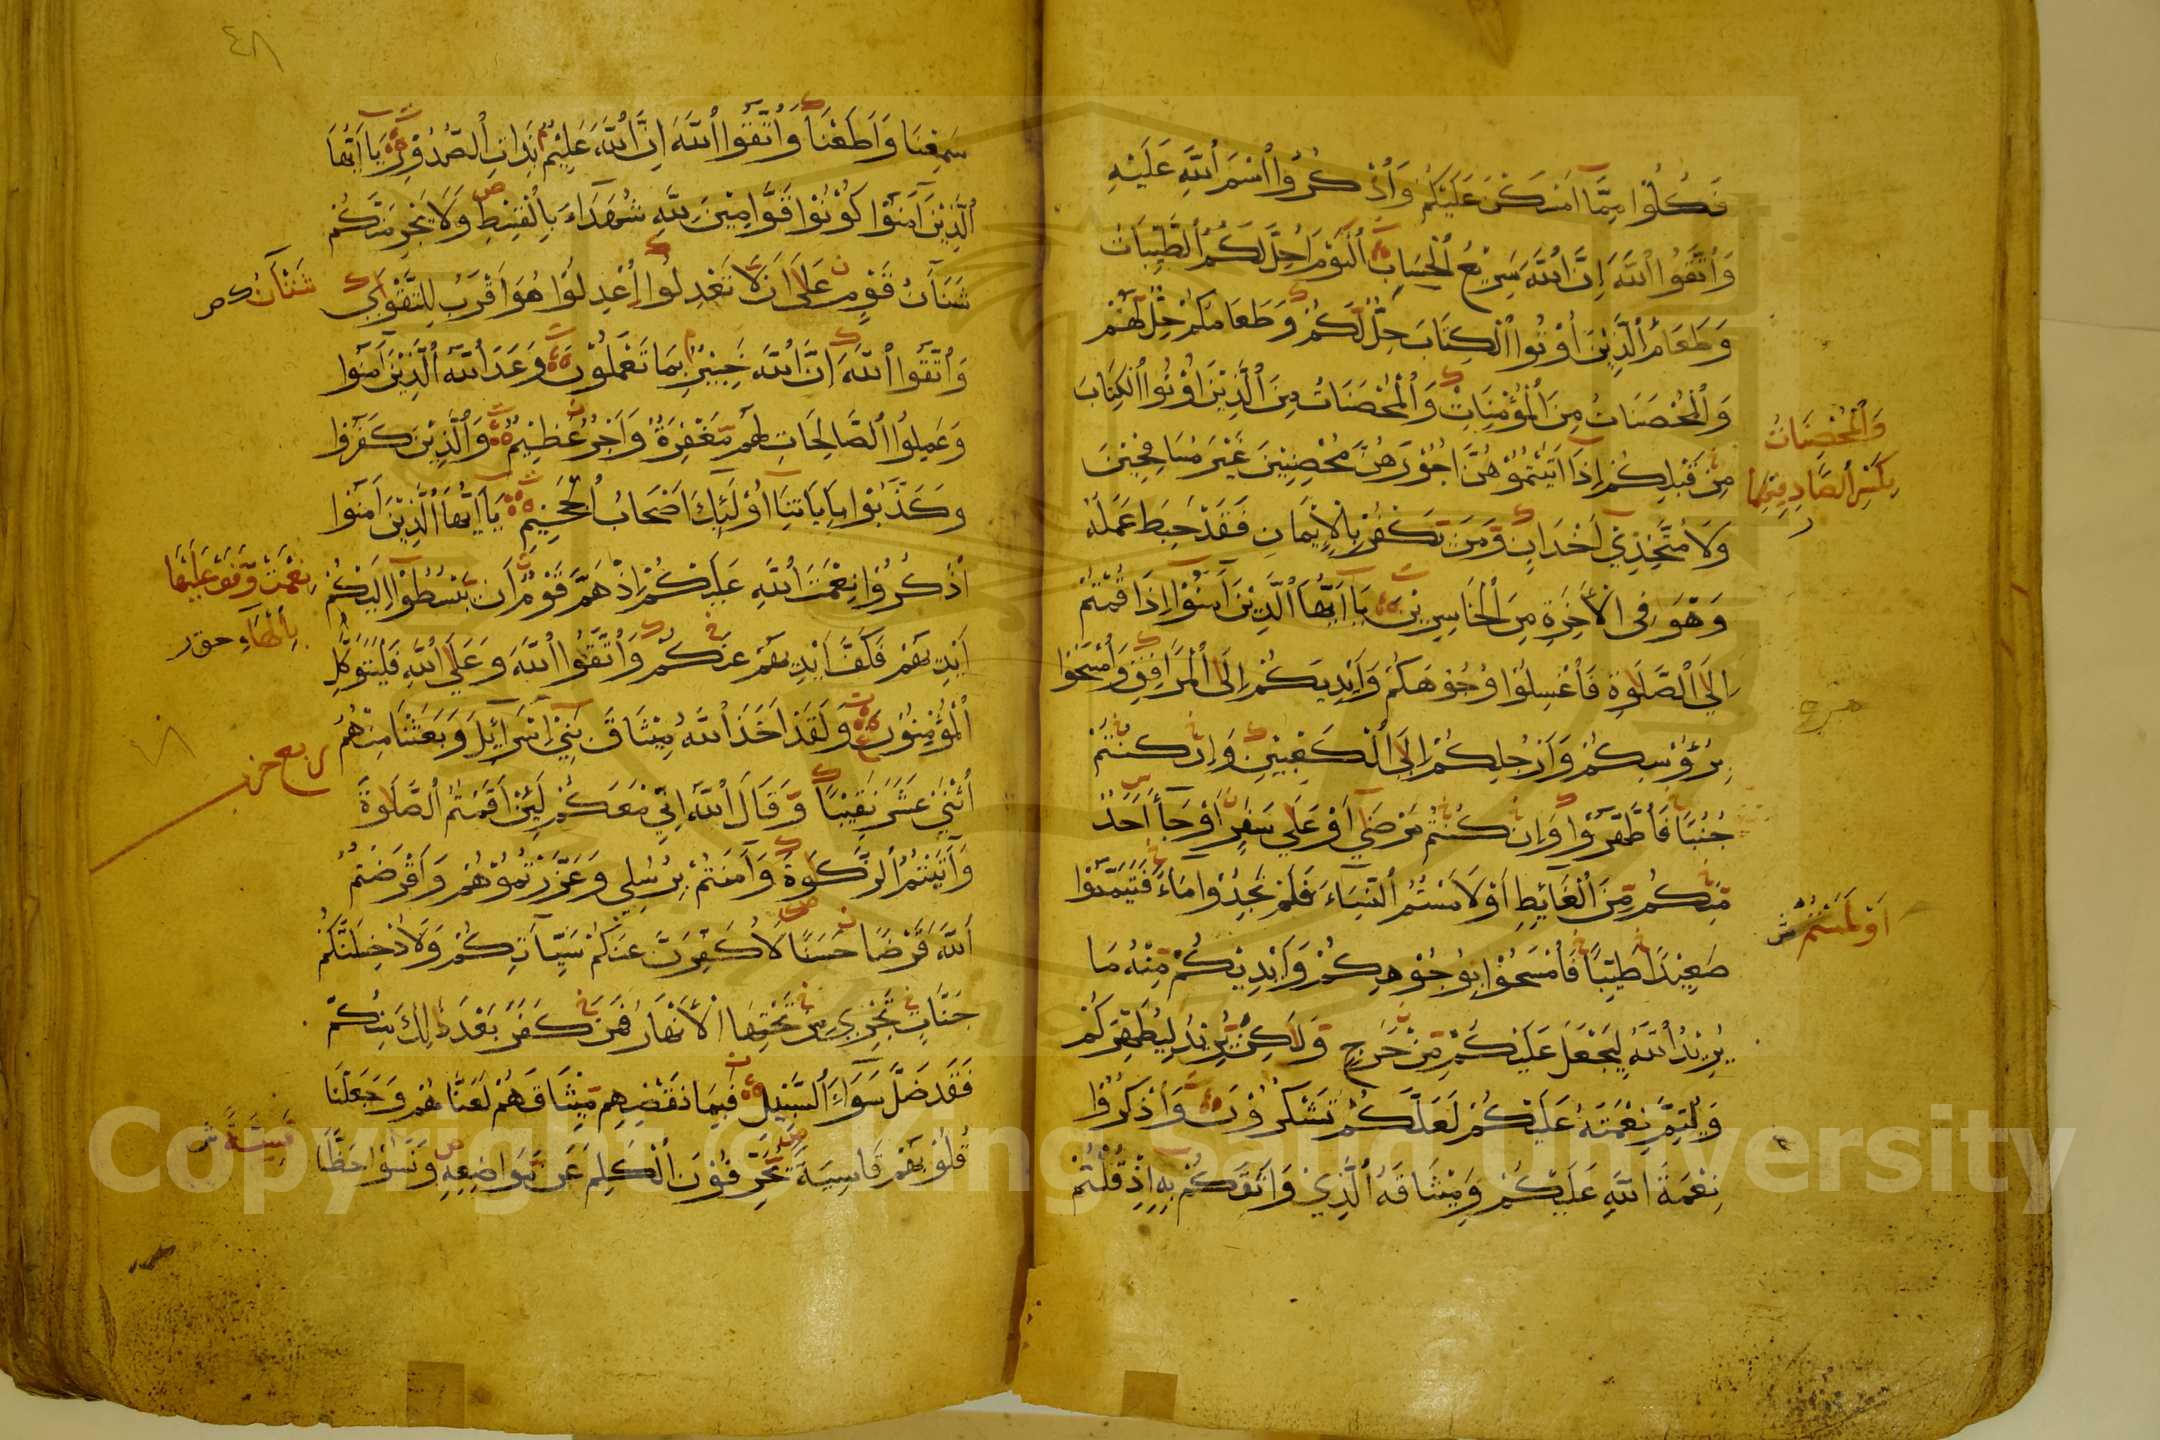 فَكُلُوْا مِمَّا اَمْسَكْنَ عَلَيْكُمْ وَاذْكُرُوا اسْمَ اللّٰهِ عَلَيْهِ
وَاتَّقُوا اللّٰهَ اِنَّ اللّٰهَ سَرِيْعُ الْحِسَابِ اَلْيَوْمَ اُحِلَّ لَكُمُ الطَّيِّبَاتُ
وَطَعَامُ الَّذِيْنَ اُوْتُوا الْكِتَابَ حِلٌّ لَكُمْ وَطَعَامُكُمْ حِلٌّ لَهُمْ
وَالْمُحْصَنَاتُ مِنَ الْمُؤْمِنَاتِ وَالْمُحْصَنَاتُ مِنَ الَّذِيْنَ اُوْتُوا الْكِتَابَ
وَالْمُحْصِنَاتُ
مِنْ قَبْلِكُمْ اِذَا اٰتَيْتُمُوْهُنَّ اُجُوْرَهُنَّ مُحْصِنِيْنَ غَيْرَ مُسَافِحِيْنَ
بِكَسْرِ الصَّادِ فِيْهِمَا
ر
وَلَا مُتَّخِذِيْ اَخْدَانٍ وَمَنْ يَكْفُرْ بِالْاِيْمَانِ فَقَدْ حَبِطَ عَمَلُهُ
وَهُوَ فِى الْاٰخِرَةِ مِنَ الْخَاسِرِيْنَ يَا اَيُّهَا الَّذِيْنَ اٰمَنُوْا اِذَا قُمْتُمْ
اِلَى الصَّلٰوةِ فَاغْسِلُوْا وُجُوْهَكُمْ وَاَيْدِيَكُمْ اِلَى الْمَرَافِقِ وَامْسَحُوْا
بِرُؤُوْسِكُمْ وَاَرْجُلِكُمْ اِلَى الْكَعْبَيْنِ وَاِنْ كُنْتُمْ
جُنُبًا فَاطَّهَّرُوْا وَاِنْ كُنْتُمْ مَرْضٰى اَوْ عَلٰى سَفَرٍ اَوْ جَآءَ اَحَدٌ
مِنْكُمْ مِنَ الْغَآئِطِ اَوْ لَامَسْتُمُ النِّسَآءَ فَلَمْ تَجِدُوْا مَآءً فَتَيَمَّمُوْا
اَوْ لَمَسْتُمُ ش
صَعِيْدًا طَيِّبًا فَامْسَحُوْا بِوُجُوْهِكُمْ وَاَيْدِيْكُمْ مِنْهُ مَا
يُرِيْدُ اللّٰهُ لِيَجْعَلَ عَلَيْكُمْ مِنْ حَرَجٍ وَلٰكِنْ يُرِيْدُ لِيُطَهِّرَكُمْ
وَلِيُتِمَّ نِعْمَتَهُ عَلَيْكُمْ لَعَلَّكُمْ تَشْكُرُوْنَ وَاذْكُرُوْا
نِعْمَةَ اللّٰهِ عَلَيْكُمْ وَمِيْثَاقَهُ الَّذِيْ وَاثَقَكُمْ بِهِ اِذْ قُلْتُمْ
٤٨
سَمِعْنَا وَاَطَعْنَا وَاتَّقُوا اللّٰهَ اِنَّ اللّٰهَ عَلِيْمٌ بِذَاتِ الصُّدُوْرِ يَا اَيُّهَا
الَّذِيْنَ اٰمَنُوْا كُوْنُوْا قَوَّامِيْنَ لِلّٰهِ شُهَدَآءَ بِالْقِسْطِ وَلَا يَجْرِمَنَّكُمْ
شَنَاٰنُ قَوْمٍ عَلٰى اَنْ لَا تَعْدِلُوْا اِعْدِلُوْا هُوَ اَقْرَبُ لِلتَّقْوٰى
شَنْاٰنُ ك ص
وَاتَّقُوا اللّٰهَ اِنَّ اللّٰهَ خَبِيْرٌ بِمَا تَعْمَلُوْنَ وَعَدَ اللّٰهُ الَّذِيْنَ اٰمَنُوْا
وَعَمِلُوا الصَّالِحَاتِ لَهُمْ مَغْفِرَةٌ وَاَجْرٌ عَظِيْمٌ وَالَّذِيْنَ كَفَرُوْا
وَكَذَّبُوْا بِاٰيَاتِنَا اُولٰئِكَ اَصْحَابُ الْجَحِيْمِ يَا اَيُّهَا الَّذِيْنَ اٰمَنُوا
اذْكُرُوْا نِعْمَتَ اللّٰهِ عَلَيْكُمْ اِذْ هَمَّ قَوْمٌ اَنْ يَبْسُطُوْا اِلَيْكُمْ
نِعْمَتْ وَقْفٌ عَلَيْهَا
اَيْدِيَهُمْ فَكَفَّ اَيْدِيَهُمْ عَنْكُمْ وَاتَّقُوا اللّٰهَ وَعَلَى اللّٰهِ فَلْيَتَوَكَّلِ
بِالْهَاءِ حق ر
الْمُؤْمِنُوْنَ وَلَقَدْ اَخَذَ اللّٰهُ مِيْثَاقَ بَنِيْ اِسْرَآئِيْلَ وَبَعَثْنَا مِنْهُمُ
ربع حزب
اثْنَيْ عَشَرَ نَقِيْبًا وَقَالَ اللّٰهُ اِنِّيْ مَعَكُمْ لَئِنْ اَقَمْتُمُ الصَّلٰوةَ
وَاٰتَيْتُمُ الزَّكٰوةَ وَاٰمَنْتُمْ بِرُسُلِي وَعَزَّرْتُمُوْهُمْ وَاَقْرَضْتُمُ
اللّٰهَ قَرْضًا حَسَنًا لَاُكَفِّرَنَّ عَنْكُمْ سَيِّاٰتِكُمْ وَلَاُدْخِلَنَّكُمْ
جَنَّاتٍ تَجْرِيْ مِنْ تَحْتِهَا الْاَنْهَارُ فَمَنْ كَفَرَ بَعْدَ ذٰلِكَ مِنْكُمْ
فَقَدْ ضَلَّ سَوَآءَ السَّبِيْلِ فَبِمَا نَقْضِهِمْ مِيْثَاقَهُمْ لَعَنَّاهُمْ وَجَعَلْنَا
قُلُوْبَهُمْ قَاسِيَةً يُحَرِّفُوْنَ الْكَلِمَ عَنْ مَوَاضِعِهِ وَنَسُوْا حَظًّا
قَسِيَّةً ش
Copyright © King Saud University